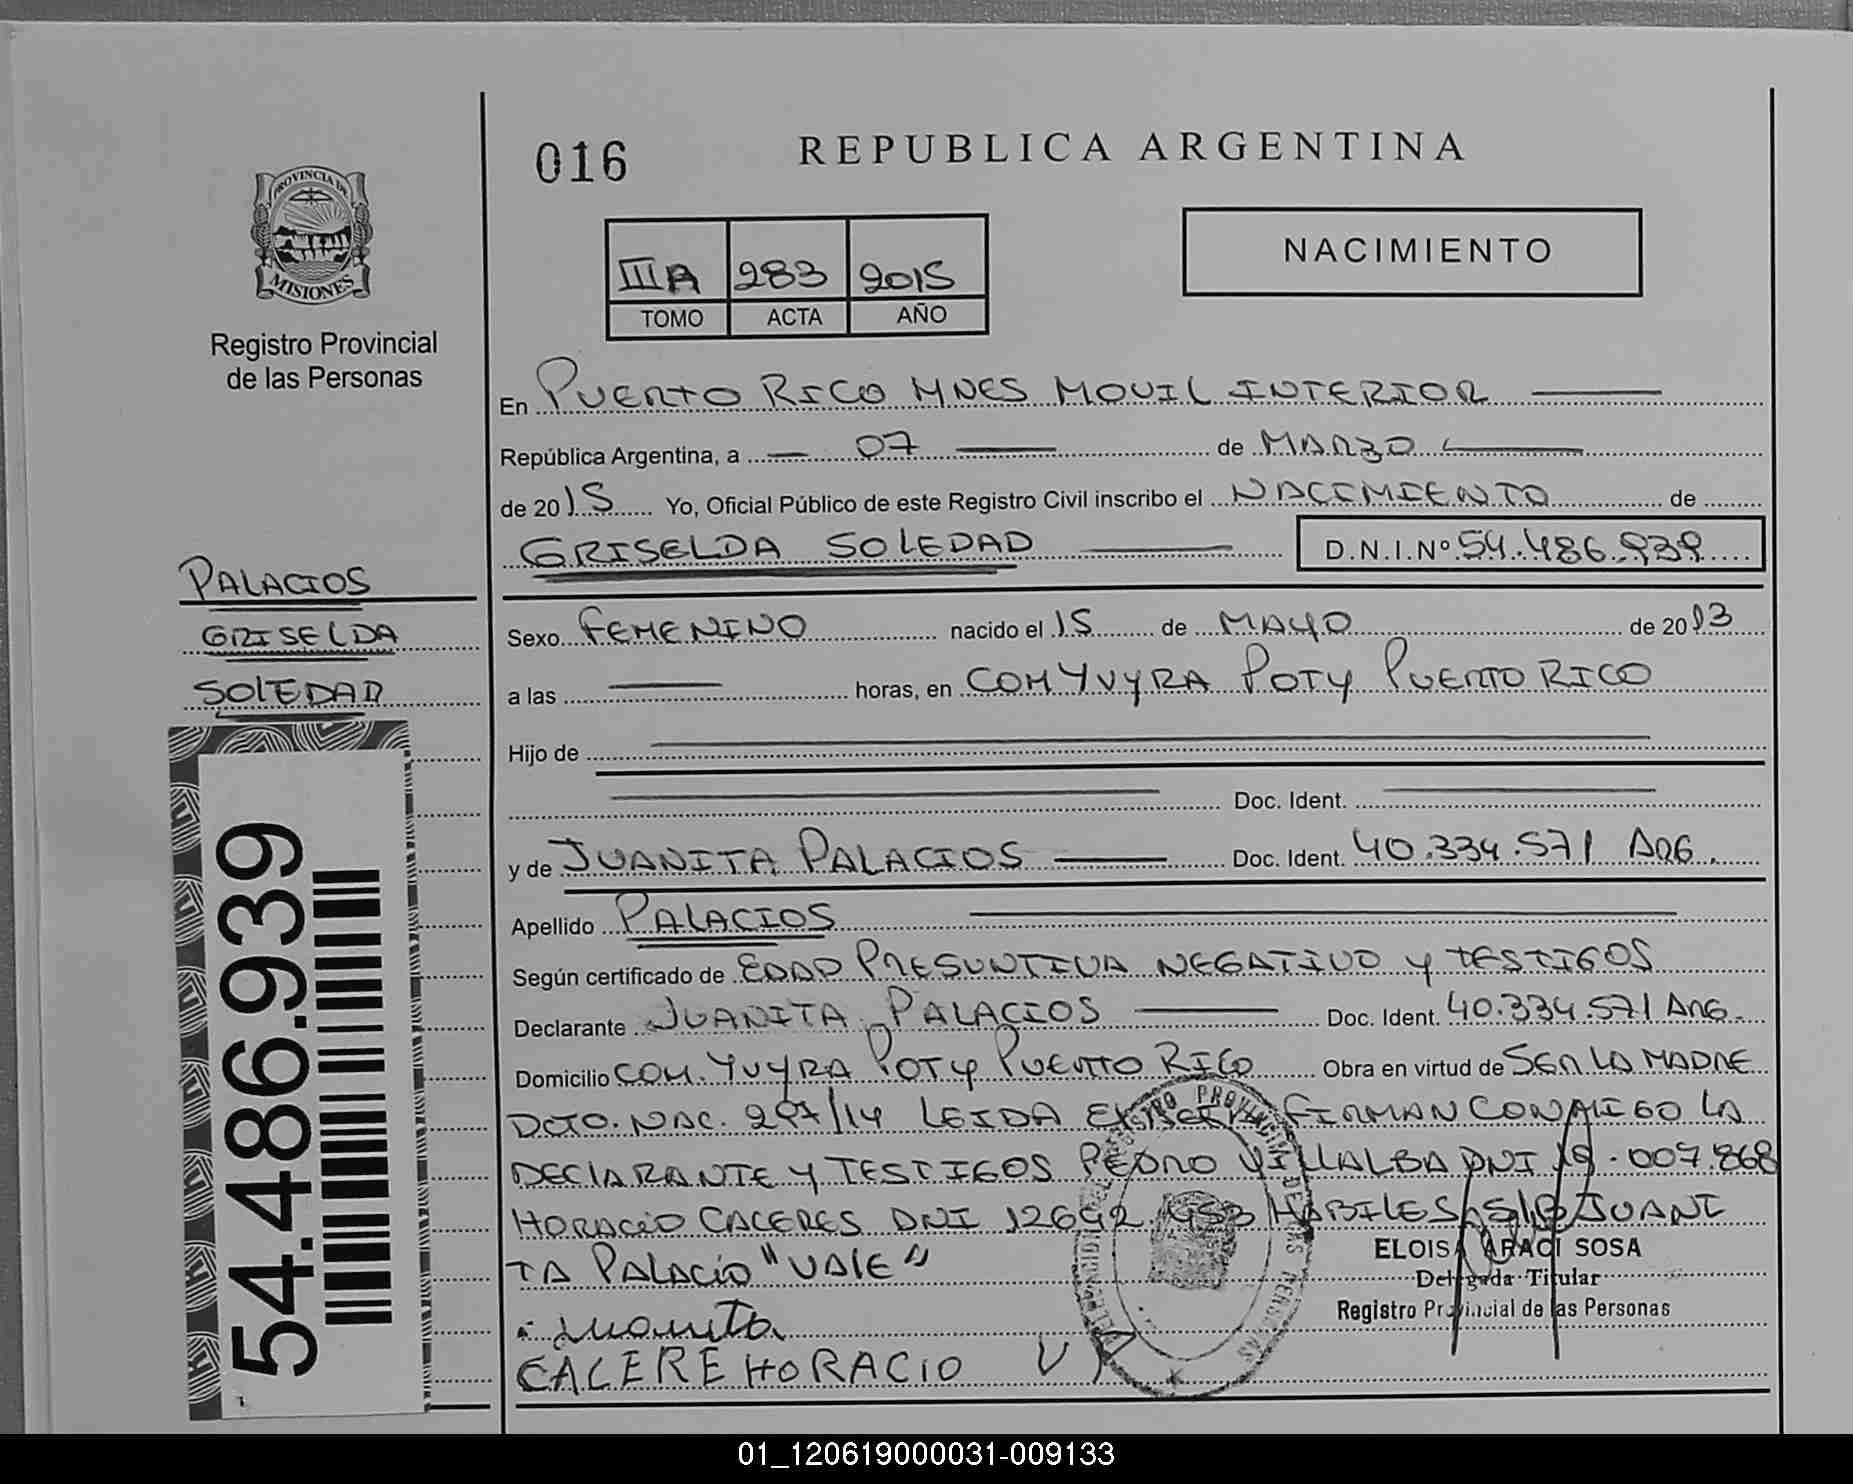 016
REPUBLICA ARGENTINA
PROVINCIA DE
MISIONES
Registro Provincial
de las Personas
IIIA 283 2015
TOMO ACTA AÑO
NACIMIENTO
En PUERTO RICO MNES MOVIL INTERIOR
República Argentina, a 07 de MARZO
de 2015 Yo, Oficial Público de este Registro Civil inscribo el NACIMIENTO de
GRISELDA SOLEDAD D.N.I.Nº 54.486.939
PALACIOS
GRISELDA
SOLEDAD
Sexo FEMENINO nacido el 15 de MAYO de 2013
a las horas, en COM YVYRA POTY PUERTO RICO
Hijo de
Doc. Ident.
y de JUANITA PALACIOS Doc. Ident. 40.334.571 ARG.
Apellido PALACIOS
Según certificado de EDAD PRESUNTIVA NEGATIVO Y TESTIGOS
Declarante JUANITA PALACIOS Doc. Ident. 40.334.571 ARG.
Domicilio COM. YVYRA POTY PUERTO RICO Obra en virtud de SER LA MADRE
DCTO. NAC. 297/14 LEIDA EL ACTA FIRMAN CONMIGO LA
DECLARANTE Y TESTIGOS PEDRO VILLALBA DNI 19.007.868
HORACIO CACERES DNI 12692 HABILES S/R JUANI
TA PALACIO "VALE"
Juanita
CACERE HORACIO
ELOISA ARACI SOSA
Delegada Titular
Registro Provincial de las Personas
54.486.939
01_120619000031-009133